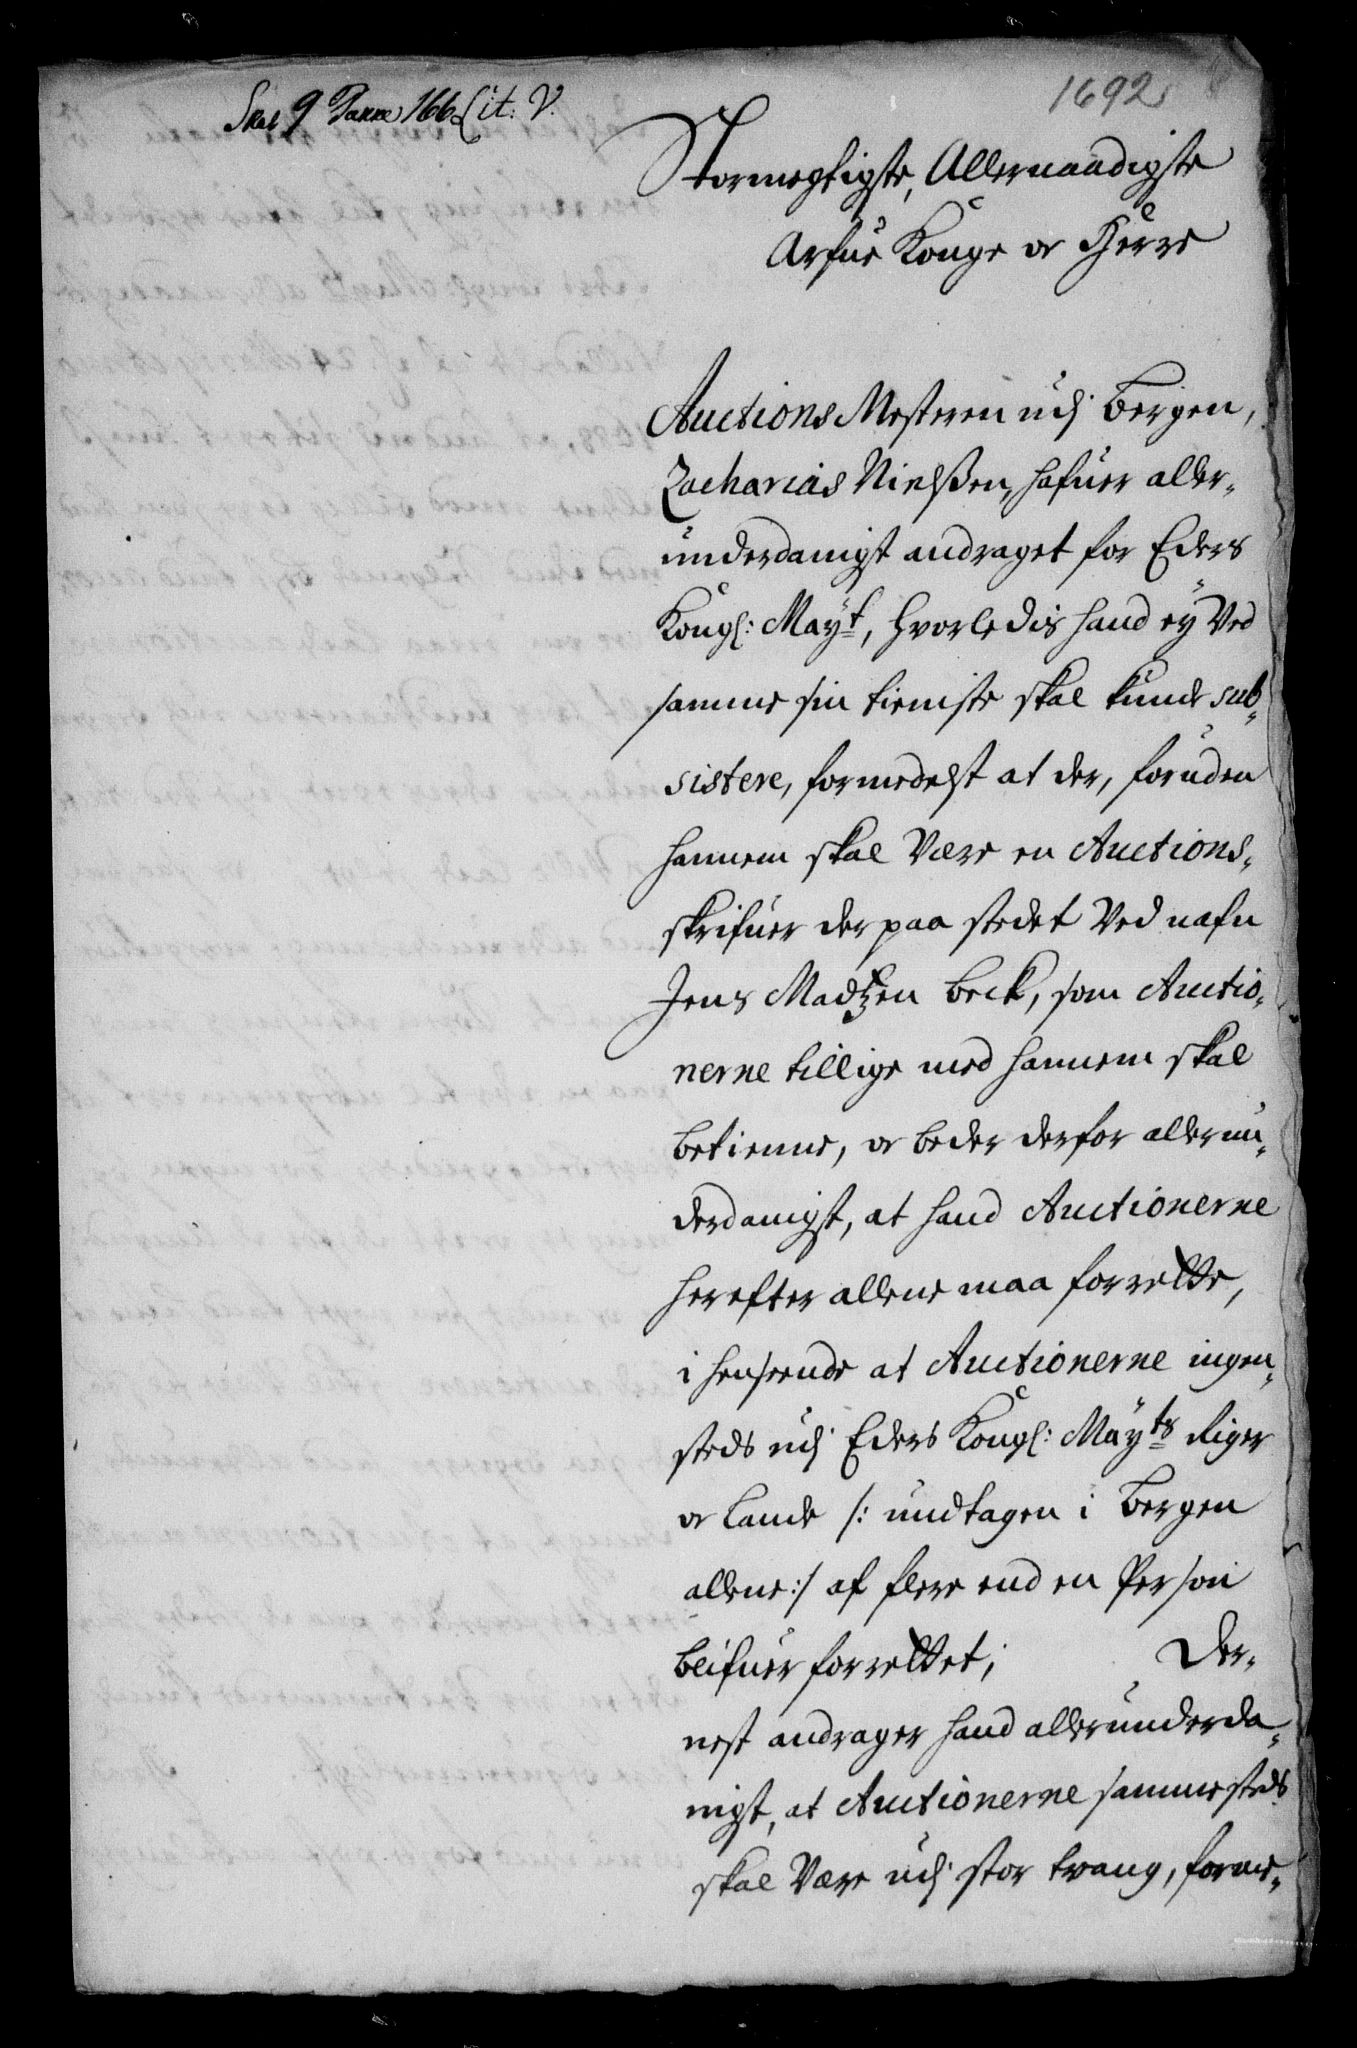 Skab 9 Pakke 166 Lit: V.
1692
Stormegtigste, Allernaadigste
Arfue Konge oc Herre
Auctions Mesteren udj Bergen,
Zacharias Nielßen, hafuer aller-
underdanigst andraget for Eders
Kongl: Mayt, hvorledis hand ey Ved
samme sin tieniste skal kunde sub-
sistere, formedelst at der, foruden
hannem skal Være en Auctions-
skrifuer der paa stedet Ved nafn
Jens Madtzen Beck, som Auctio-
nerne tillige med hannem skal
betienne, oc beder derfor allerun-
derdanigst, at hand Auctionerne
herefter allene maa forrette,
i henseende at Auctionerne ingen-
steds udj Eders Kongl: Mayts Riger
oc Lande /: undtagen i Bergen
allene :/ af flere end en Person
blifuer forrettet; Der-
nest andrager hand allerunderda-
nigst, at Auctionerne sammesteds
skal Være udj stor tvang, forme-